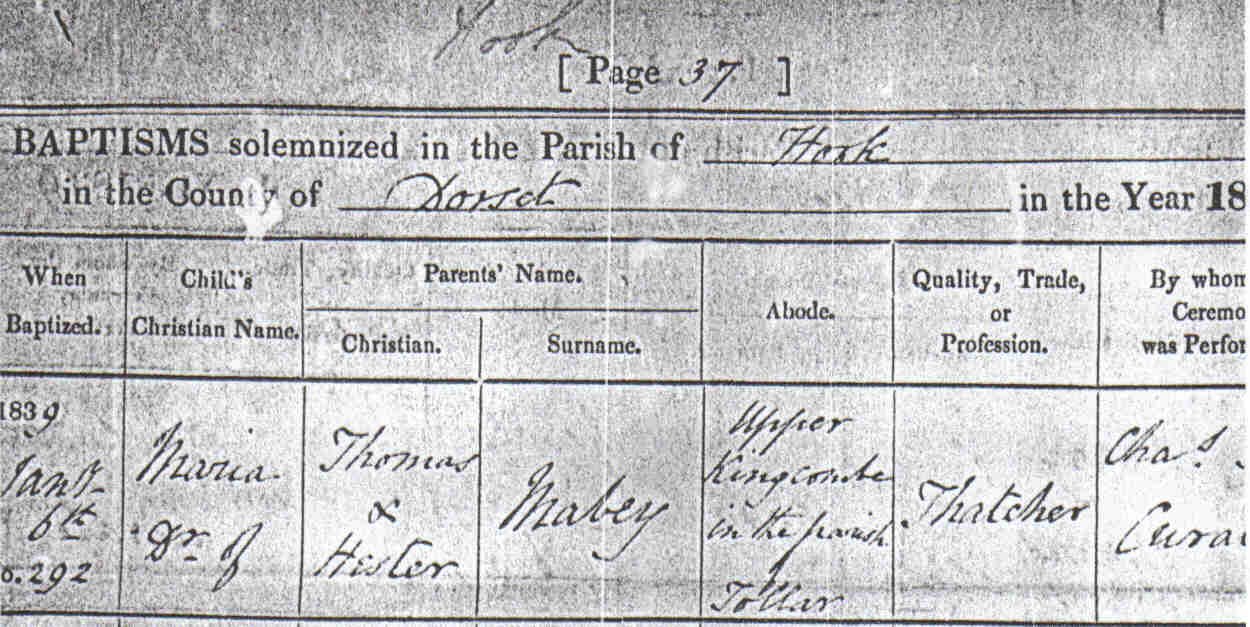 Hook
[ Page 37 ]
BAPTISMS solemnized in the Parish of Hook
in the County of Dorset in the Year 18
When
Baptized.
Child's
Christian Name.
Parents' Name.
Christian.
Surname.
Abode.
Quality, Trade,
or
Profession.
By whom
Ceremo
was Perfor
1839
Jany
6th
o. 292
Maria
Dr of
Thomas
&
Hester
Mabey
Upper
Kingcombe
in the parish
of
Tollar
Thatcher
Chas
Cura